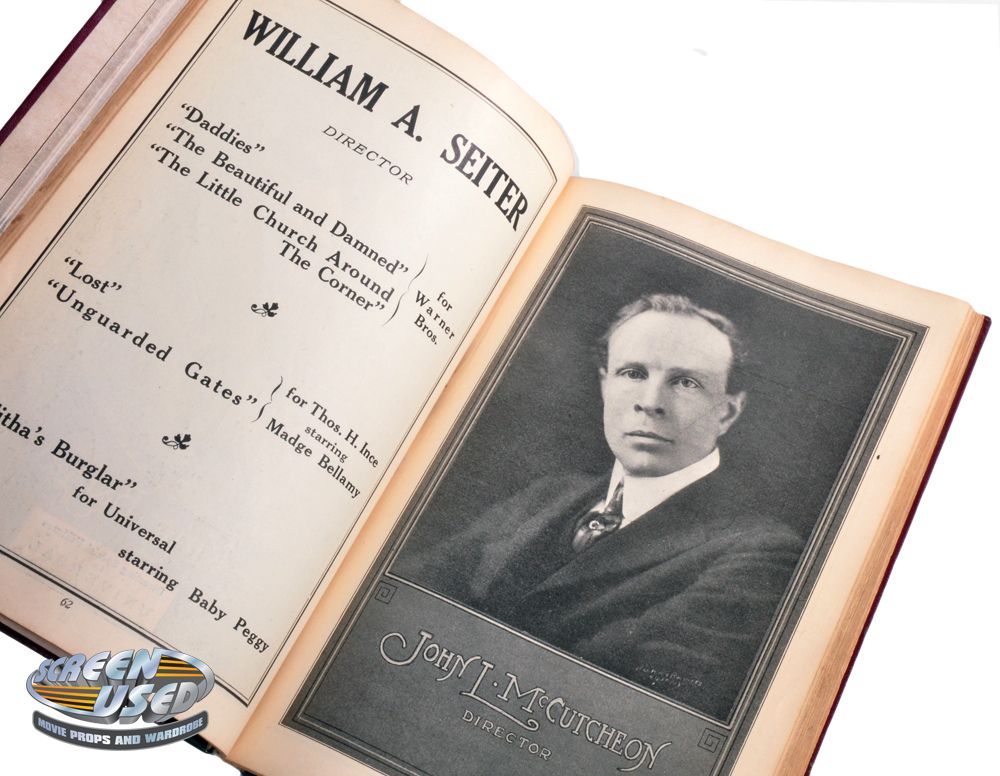 WILLIAM A. SEITER
DIRECTOR
"Daddies"
"The Beautiful and Damned"
"The Little Church Around
The Corner"
for
Warner
Bros.
"Lost"
"Unguarded Gates"
for Thos. H. Ince
starring
Madge Bellamy
Burglar"
for Universal
starring Baby Peggy
62
JOHN L. McCUTCHEON
DIRECTOR
SCREEN
USED
MOVIE PROPS AND WARDROBE